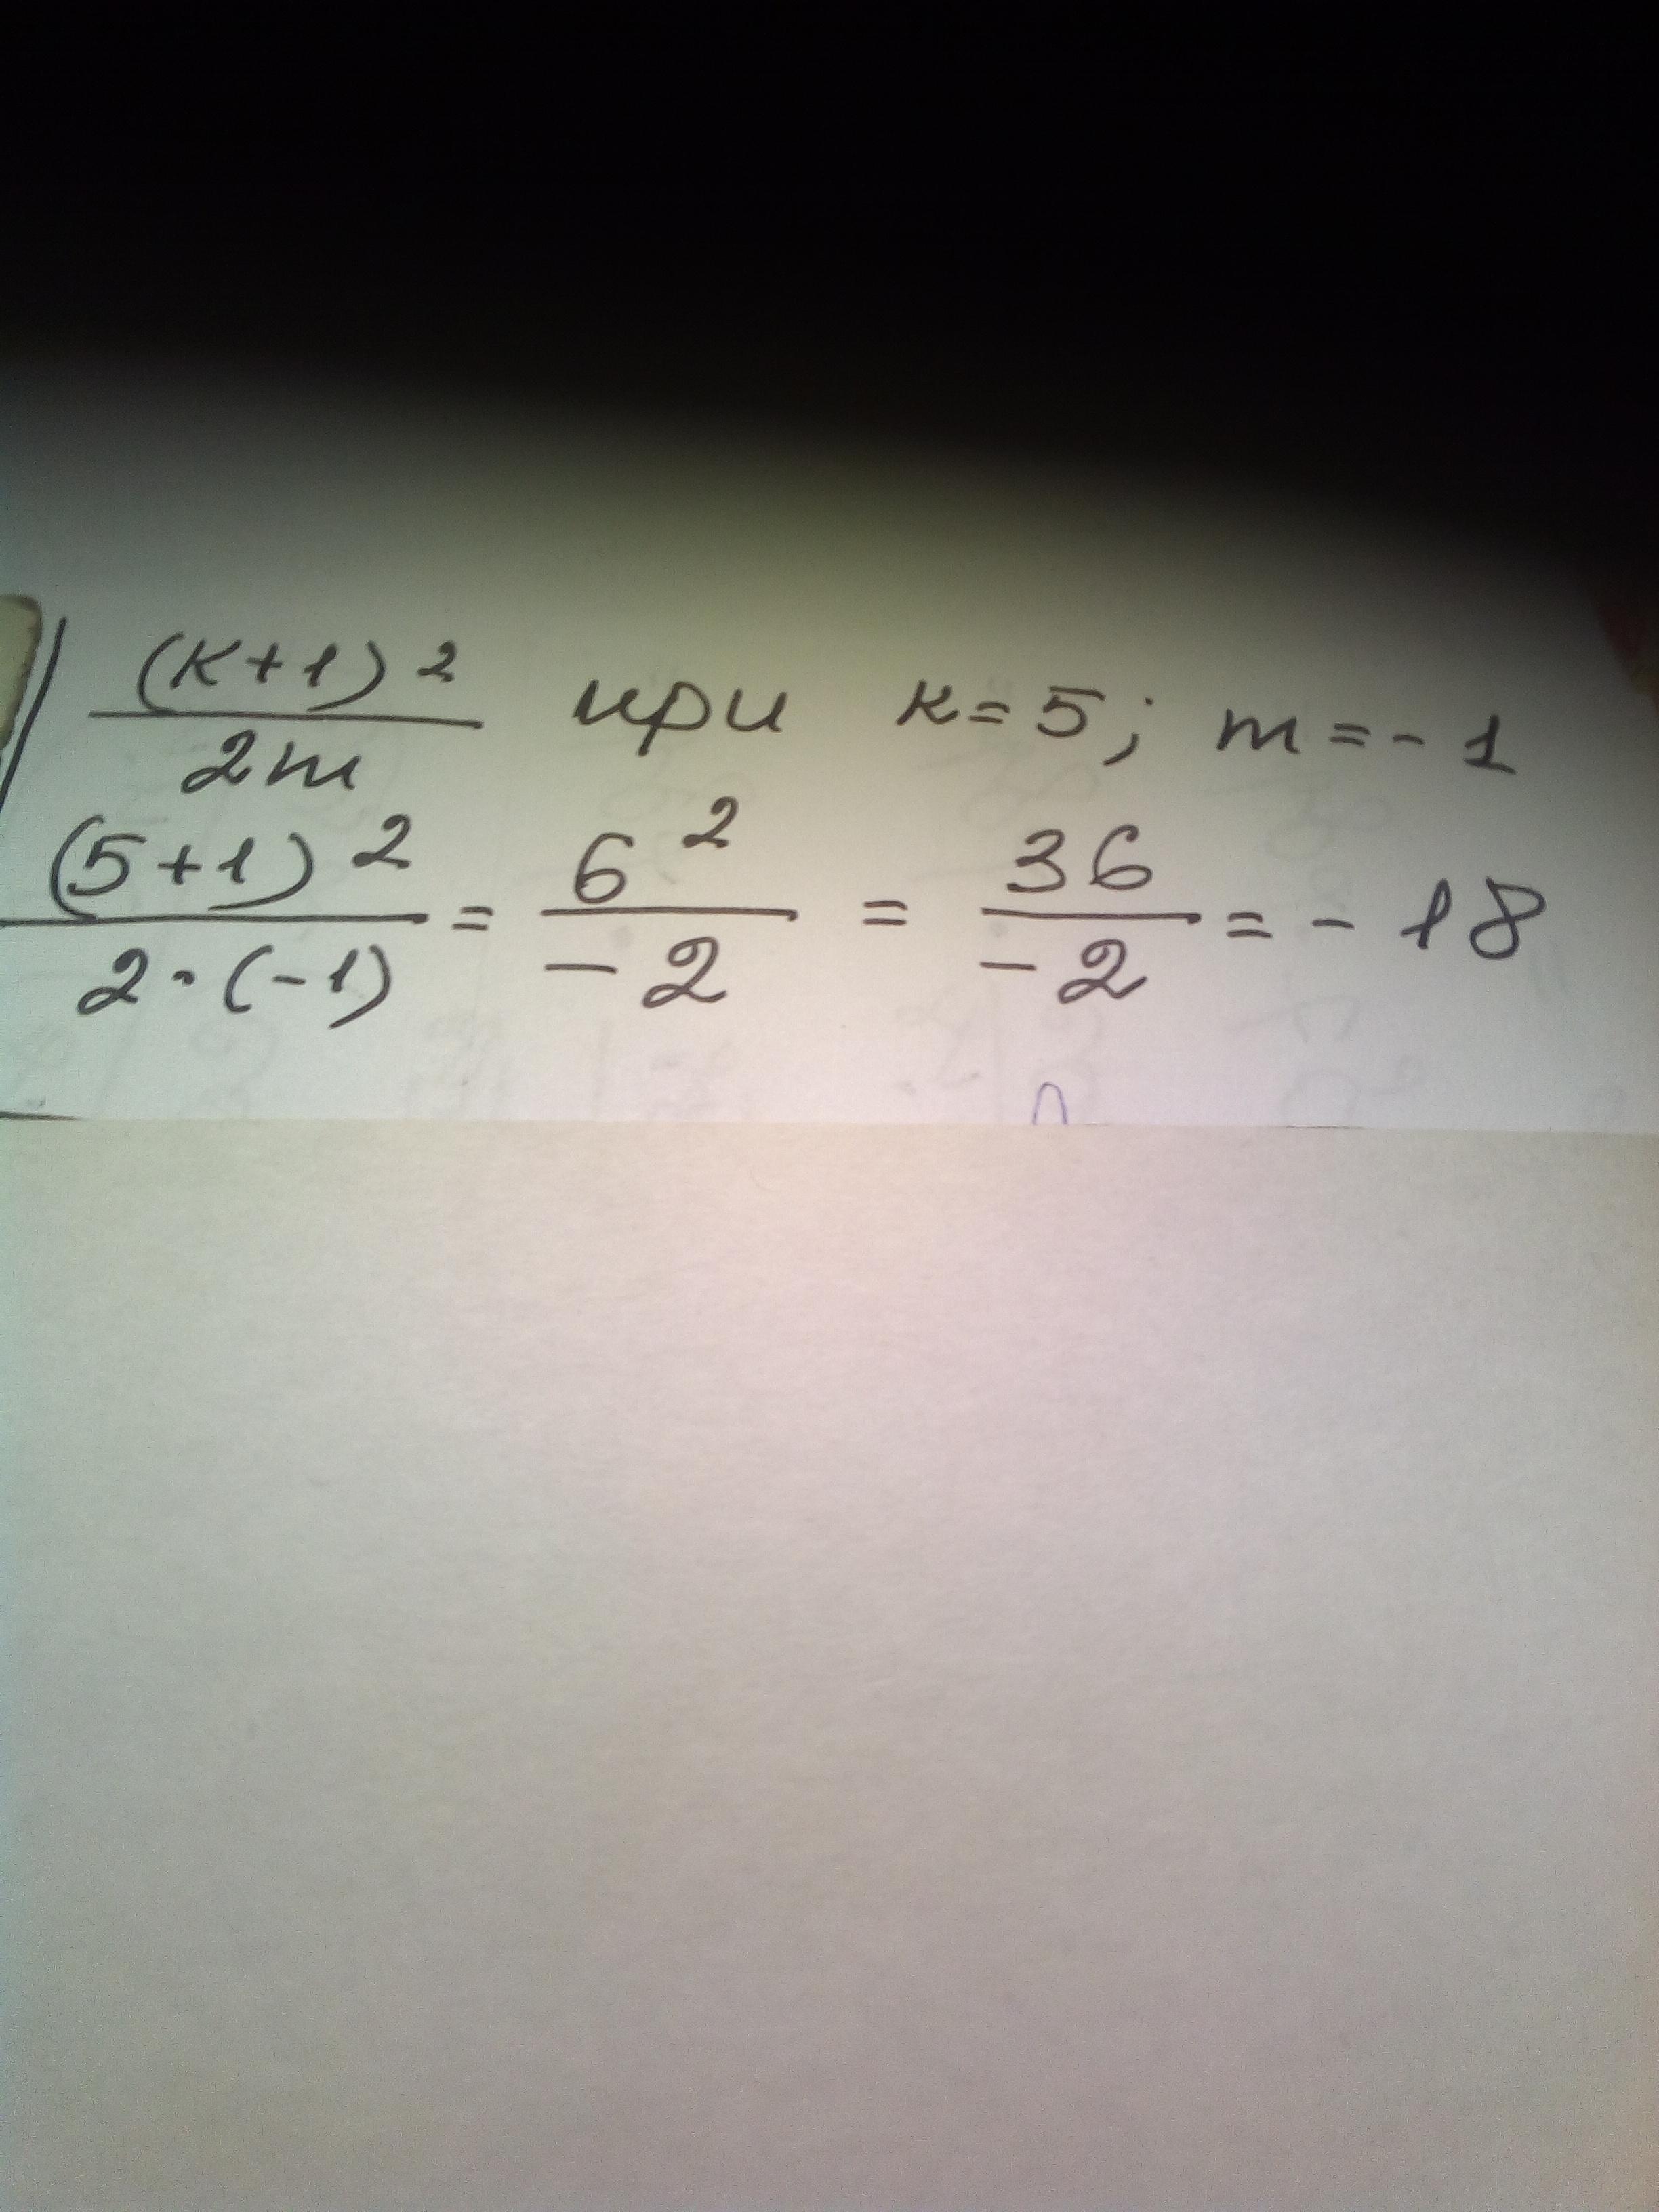 (к+1)²/2m при к=5; m=-1
(5+1)²/2·(-1) = 6²/-2 = 36/-2 = -18